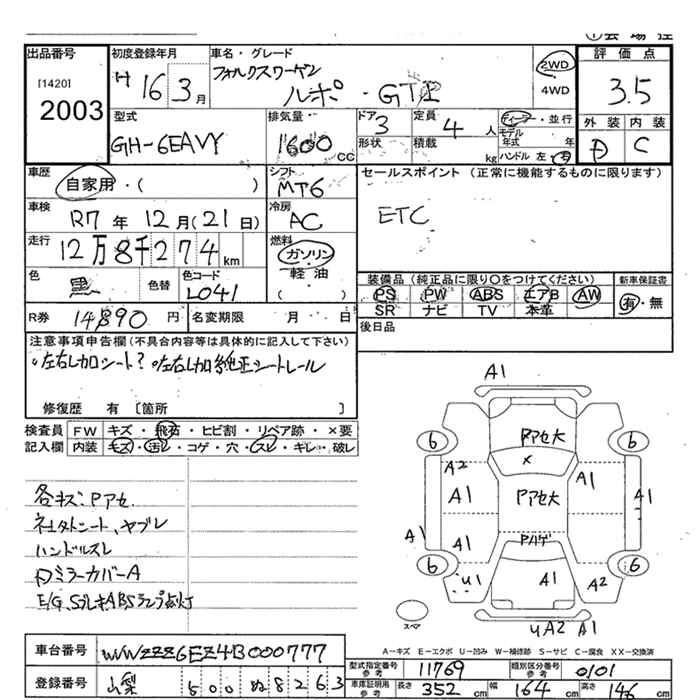 出品番号
[1420]
2003
初度登録年月
H 16 3 月
車名・グレード
フォルクスワーゲン
ルポ・GTI
2WD
4WD
評価点
3.5
外装 内装
D C
型式
GH-6EAVY
排気量
1600 CC
ドア
3
形状
定員
4 人
積載
kg
ディーラー・並行
モデル年式 年
ハンドル 左・右
車歴
自家用・( )
シフト
MT6
セールスポイント(正常に機能するものに限ります)
ETC
車検
R7 年 12 月(21 日)
冷房
AC
走行
12万8千274 km
燃料
ガソリン
軽油
( )
色
黒
色替
色コード
L041
装備品(純正品に限り○をつけてください)
PS PW ABS エアB AW
SR ナビ TV 本革
新車保証書
有・無
R券 14890 円
名変期限 月 日
後日品
注意事項申告欄(不具合内容等は具体的に記入して下さい)
修復歴 有 [箇所 ]
検査員記入欄
FW キズ・飛石・ヒビ割・リペア跡・×要
内装 キズ・汚レ・コゲ・穴・スレ・キレ・破レ
各キズ・Pアセ
ハンドルスレ
ミラーカバーA
A1
6 Pアセ大 6
×
A2 A1
A1 Pアセ大 A1
A1 A1 Pハゲ
6 6
U1 A1 A2
スペア
UA2 A1
A-キズ E-エクボ U-凹み W-補修跡 S-サビ C-腐食 XX-交換済
車台番号
WVWZZZ6EZ4B000777
登録番号
山梨 500 ぬ 8263
型式指定番号
参考
11769
類別区分番号
参考
0101
車庫証明用
参考
長さ 352 cm 幅 164 cm 高さ 146 cm